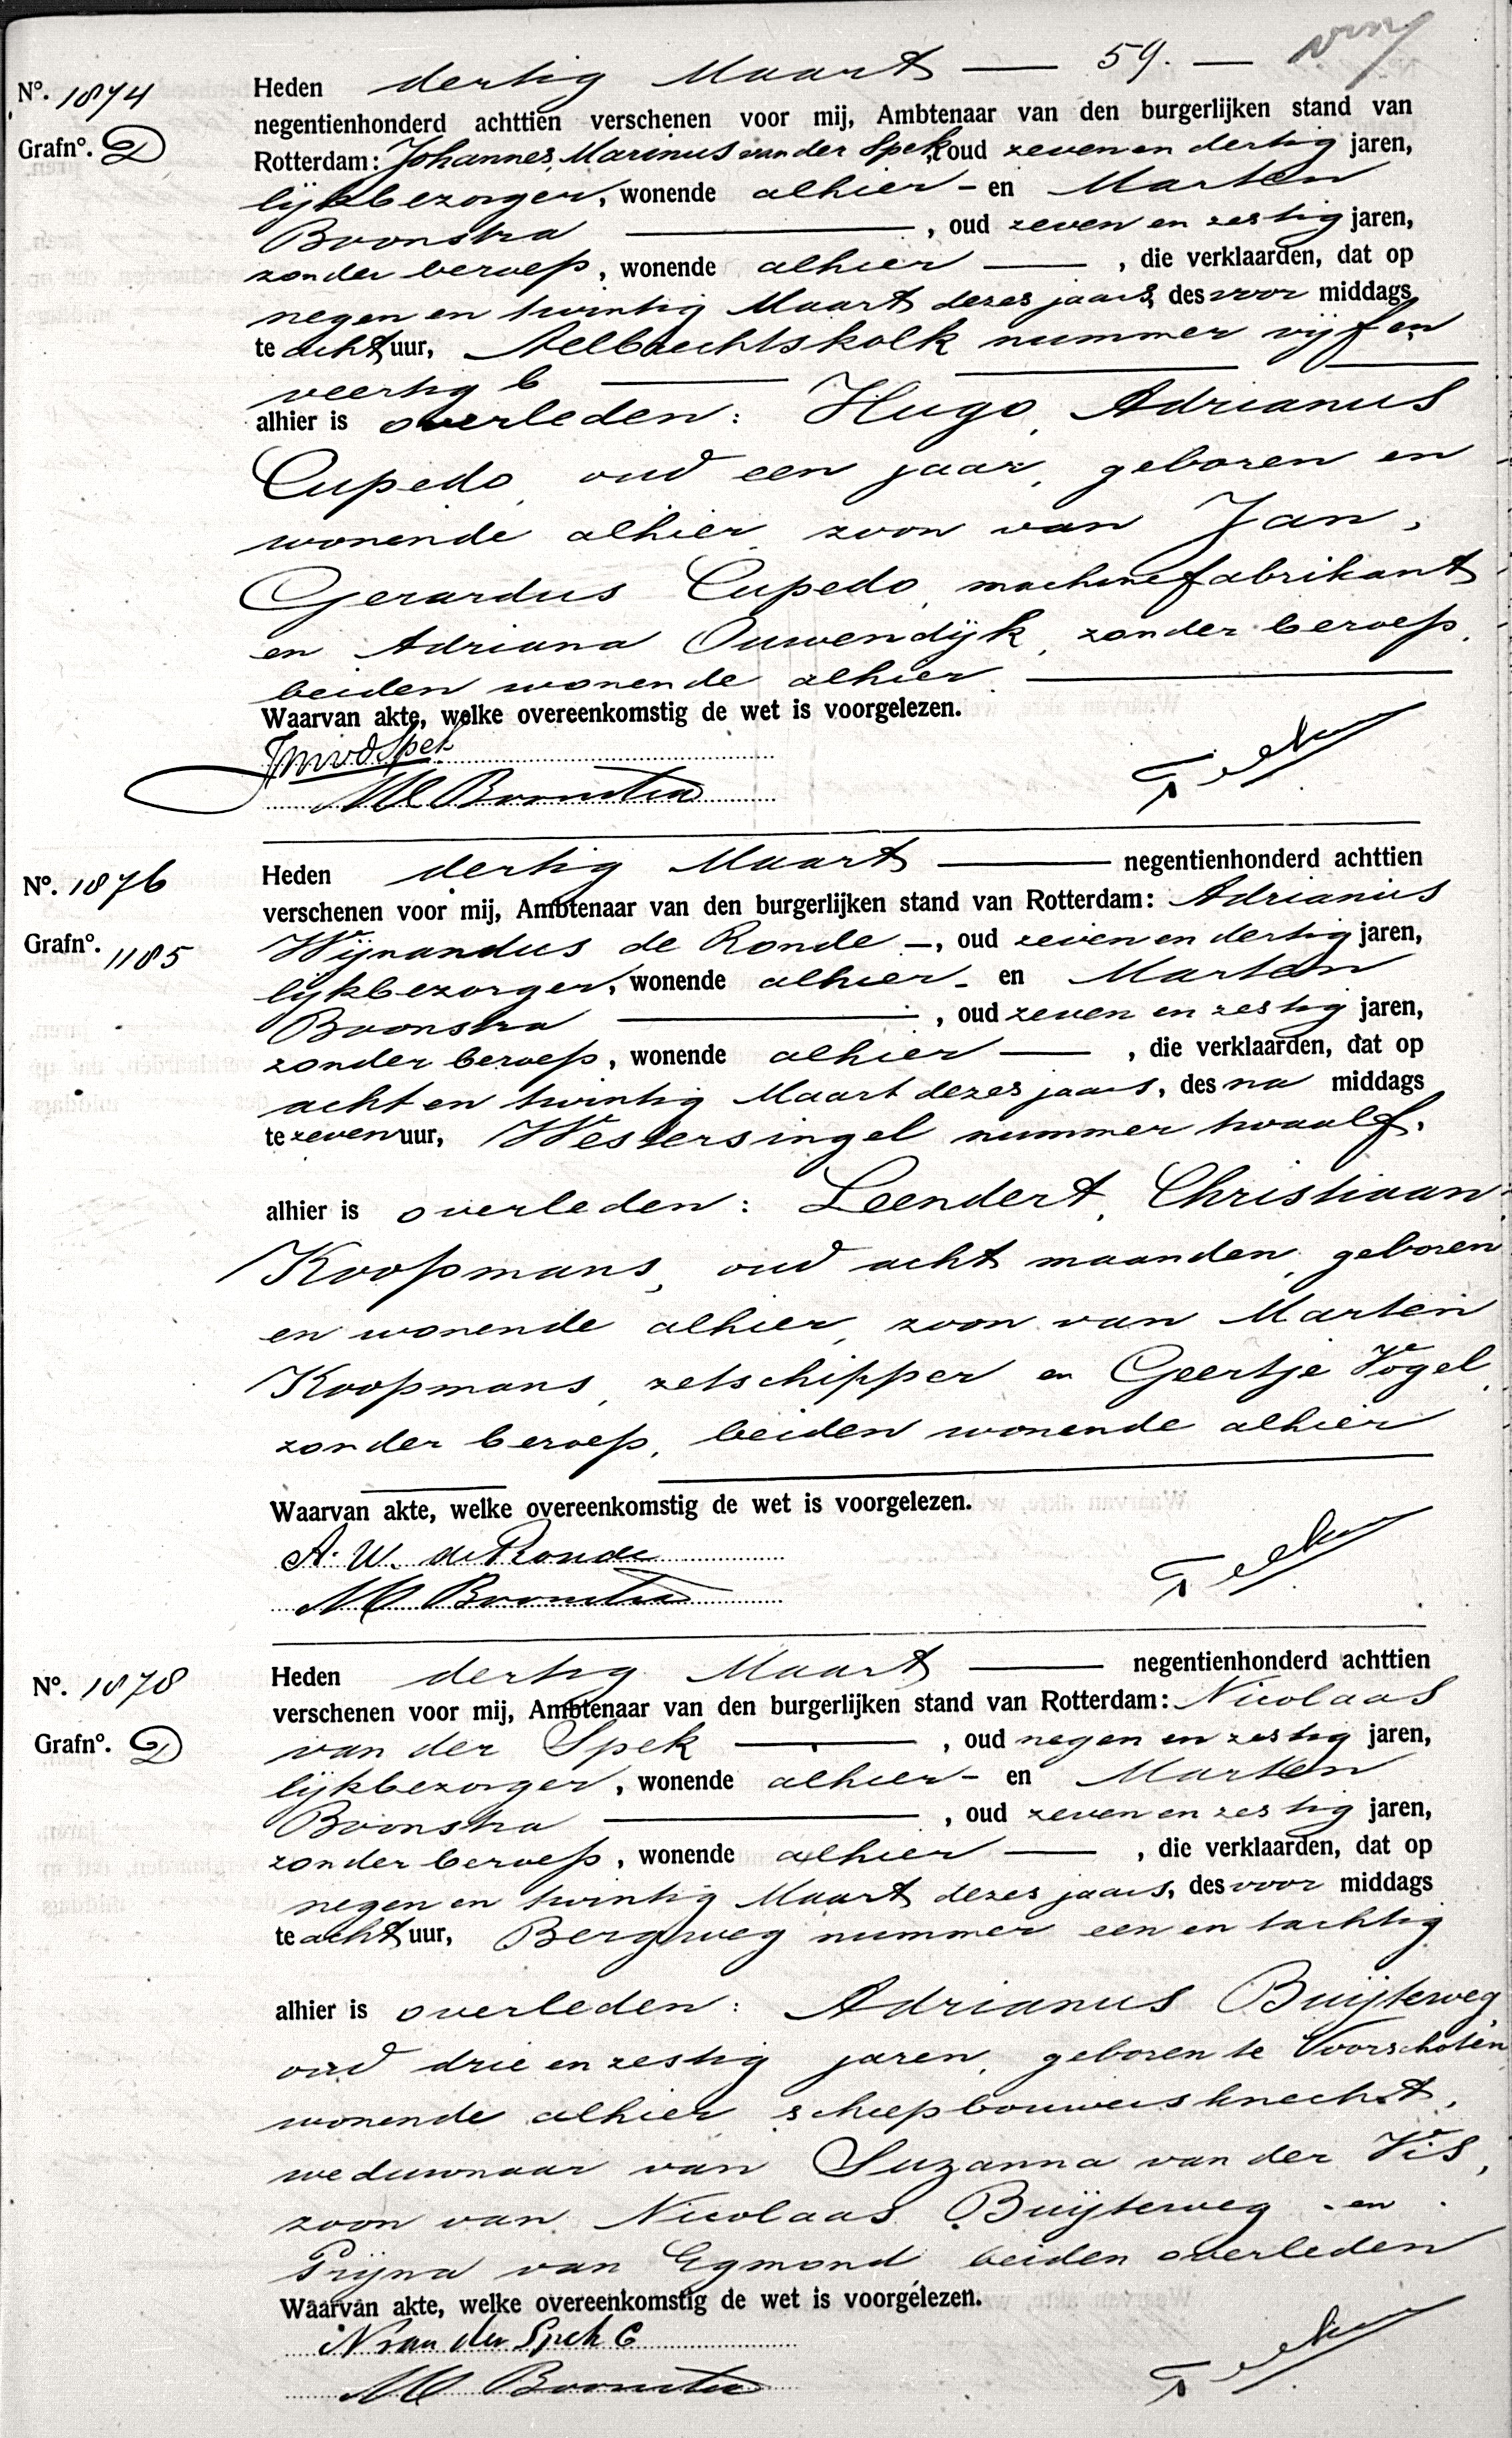 Heden dertig Maart — 59. —
Nº. 1874
negentienhonderd achttien verschenen voor mij, Ambtenaar van den burgerlijken stand van
Grafnº. D
Rotterdam: Johannes, Marinus van der Spek, oud zeven en dertig jaren,
lijkbezorger, wonende alhier - en Marten
Boonstra —, oud zeven en zestig jaren,
zonder beroep, wonende alhier —, die verklaarden, dat op
negen en twintig Maart dezes jaars, des voor middags
te acht uur, Aelbrechtskolk nummer vijf en
veertig b —
alhier is overleden: Hugo, Adrianus
Cupedo, oud een jaar, geboren en
wonende alhier, zoon van Jan,
Gerardus Cupedo, machinefabrikant
en Adriana Ouwendijk, zonder beroep,
beiden wonende alhier. —
Waarvan akte, welke overeenkomstig de wet is voorgelezen.
JMvdSpek.
M Boonstra
Heden dertig Maart — negentienhonderd achttien
Nº. 1876
verschenen voor mij, Ambtenaar van den burgerlijken stand van Rotterdam: Adrianus
Grafnº. 1185
Wijnandus de Ronde —, oud zeven en dertig jaren,
lijkbezorger, wonende alhier - en Marten
Boonstra —, oud zeven en zestig jaren,
zonder beroep, wonende alhier —, die verklaarden, dat op
acht en twintig Maart dezes jaars, des na middags
te zeven uur, Westersingel nummer twaalf.
alhier is overleden: Leendert, Christiaan
Koopmans, oud acht maanden, geboren
en wonende alhier, zoon van Marten
Koopmans, zetschipper en Geertje Vogel,
zonder beroep, beiden wonende alhier
—
Waarvan akte, welke overeenkomstig de wet is voorgelezen.
A. W. de Ronde
M Boonstra
Heden dertig Maart — negentienhonderd achttien
Nº. 1878
verschenen voor mij, Ambtenaar van den burgerlijken stand van Rotterdam: Nicolaas
Grafnº. D
van der Spek —, oud negen en zestig jaren,
lijkbezorger, wonende alhier - en Marten
Boonstra —, oud zeven en zestig jaren,
zonder beroep, wonende alhier —, die verklaarden, dat op
negen en twintig Maart dezes jaars, des voor middags
te acht uur, Bergweg nummer een en tachtig
alhier is overleden: Adrianus Buijterweg,
oud drie en zestig jaren, geboren te Voorschoten
wonende alhier, scheepbouwersknecht,
weduwnaar van Suzanna van der Vis,
zoon van Nicolaas Buijterweg - en
Prijna van Egmond, beiden overleden
Waarvan akte, welke overeenkomstig de wet is voorgelezen.
N van der Spek C
M Boonstra